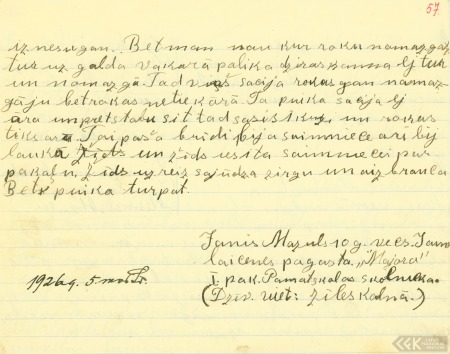 57.
iznesugan. Bet man nau kur roku namazgāt
tur uz galda vakarā palika dziras kanna ej tur
un namazgā. Tad viņš sacija rokas gan namaz-
gāju bet rokas netiek ārā. Ta puika sacija ej
āra un pret stabu sit tad sasisisies un rokas
tiks ara. Tai pašā bridi bija saimniece ari bij
laukā žids un žids usita saimniecei par
pakaļu. Žids uzreiz sajūdza zirgu un aizbrauca
Bet puika turpat.
Janis Mazuls 10 g. vecs. Jaun
laicenes pagasta "Majora"
I. pak. Pamatskolas skolnieks.
1926 g. 5.
(Dzīv. viet: Zileskalnā.)